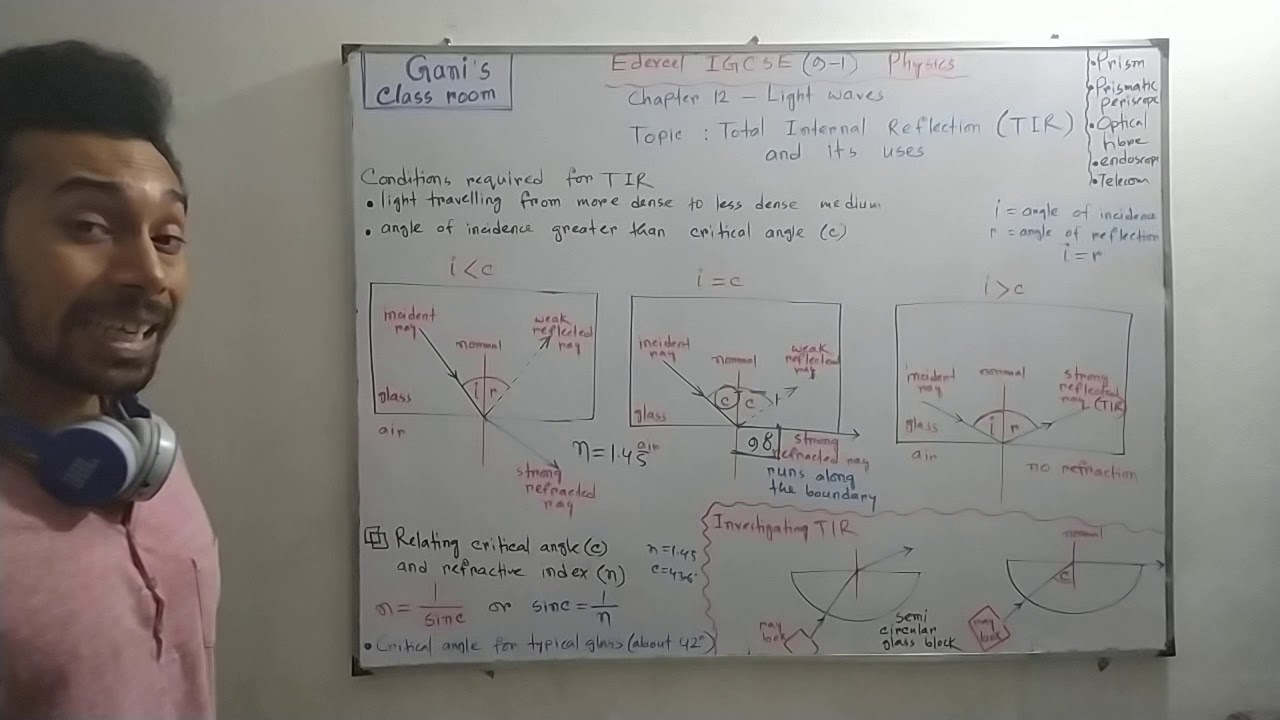 Gani's
Class room
Edexcel IGCSE (9-1) Physics
Chapter 12 – Light waves
Topic : Total Internal Reflection (TIR)
and its uses
• Prism
• Prismatic
periscope
• Optical
fibre
• endoscope
• Telecom
Conditions required for TIR
• light travelling from more dense to less dense medium
• angle of incidence greater than critical angle (c)
i = angle of incidence
r = angle of reflection
i = r
i < c
incident
ray
normal
weak
reflected
ray
i r
glass
air
strong
refracted
ray
i = c
incident
ray
normal
weak
reflected
ray
c c r
glass
air
n = 1.45
strong
refracted ray
runs along
the boundary
i > c
incident
ray
normal
strong
reflected
ray (TIR)
i r
glass
air
no refraction
Relating critical angle (c)
and refractive index (n)
n = 1.45
n = 1/sinc or sinc = 1/n
• Critical angle for typical glass (about 42°)
Investigating TIR
ray
box
semi
circular
glass block
normal
c
ray
box
JBL